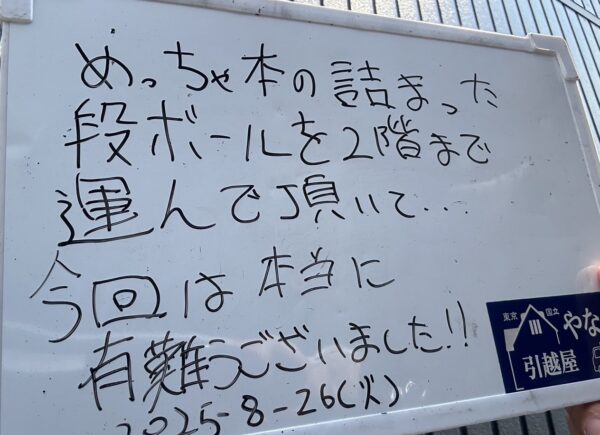 めっちゃ本の詰まった
段ボールを2階まで
運んで頂いて...
今回は本当に
有難うございました!!
2025-8-26(火)
東京 国立
やな
引越屋